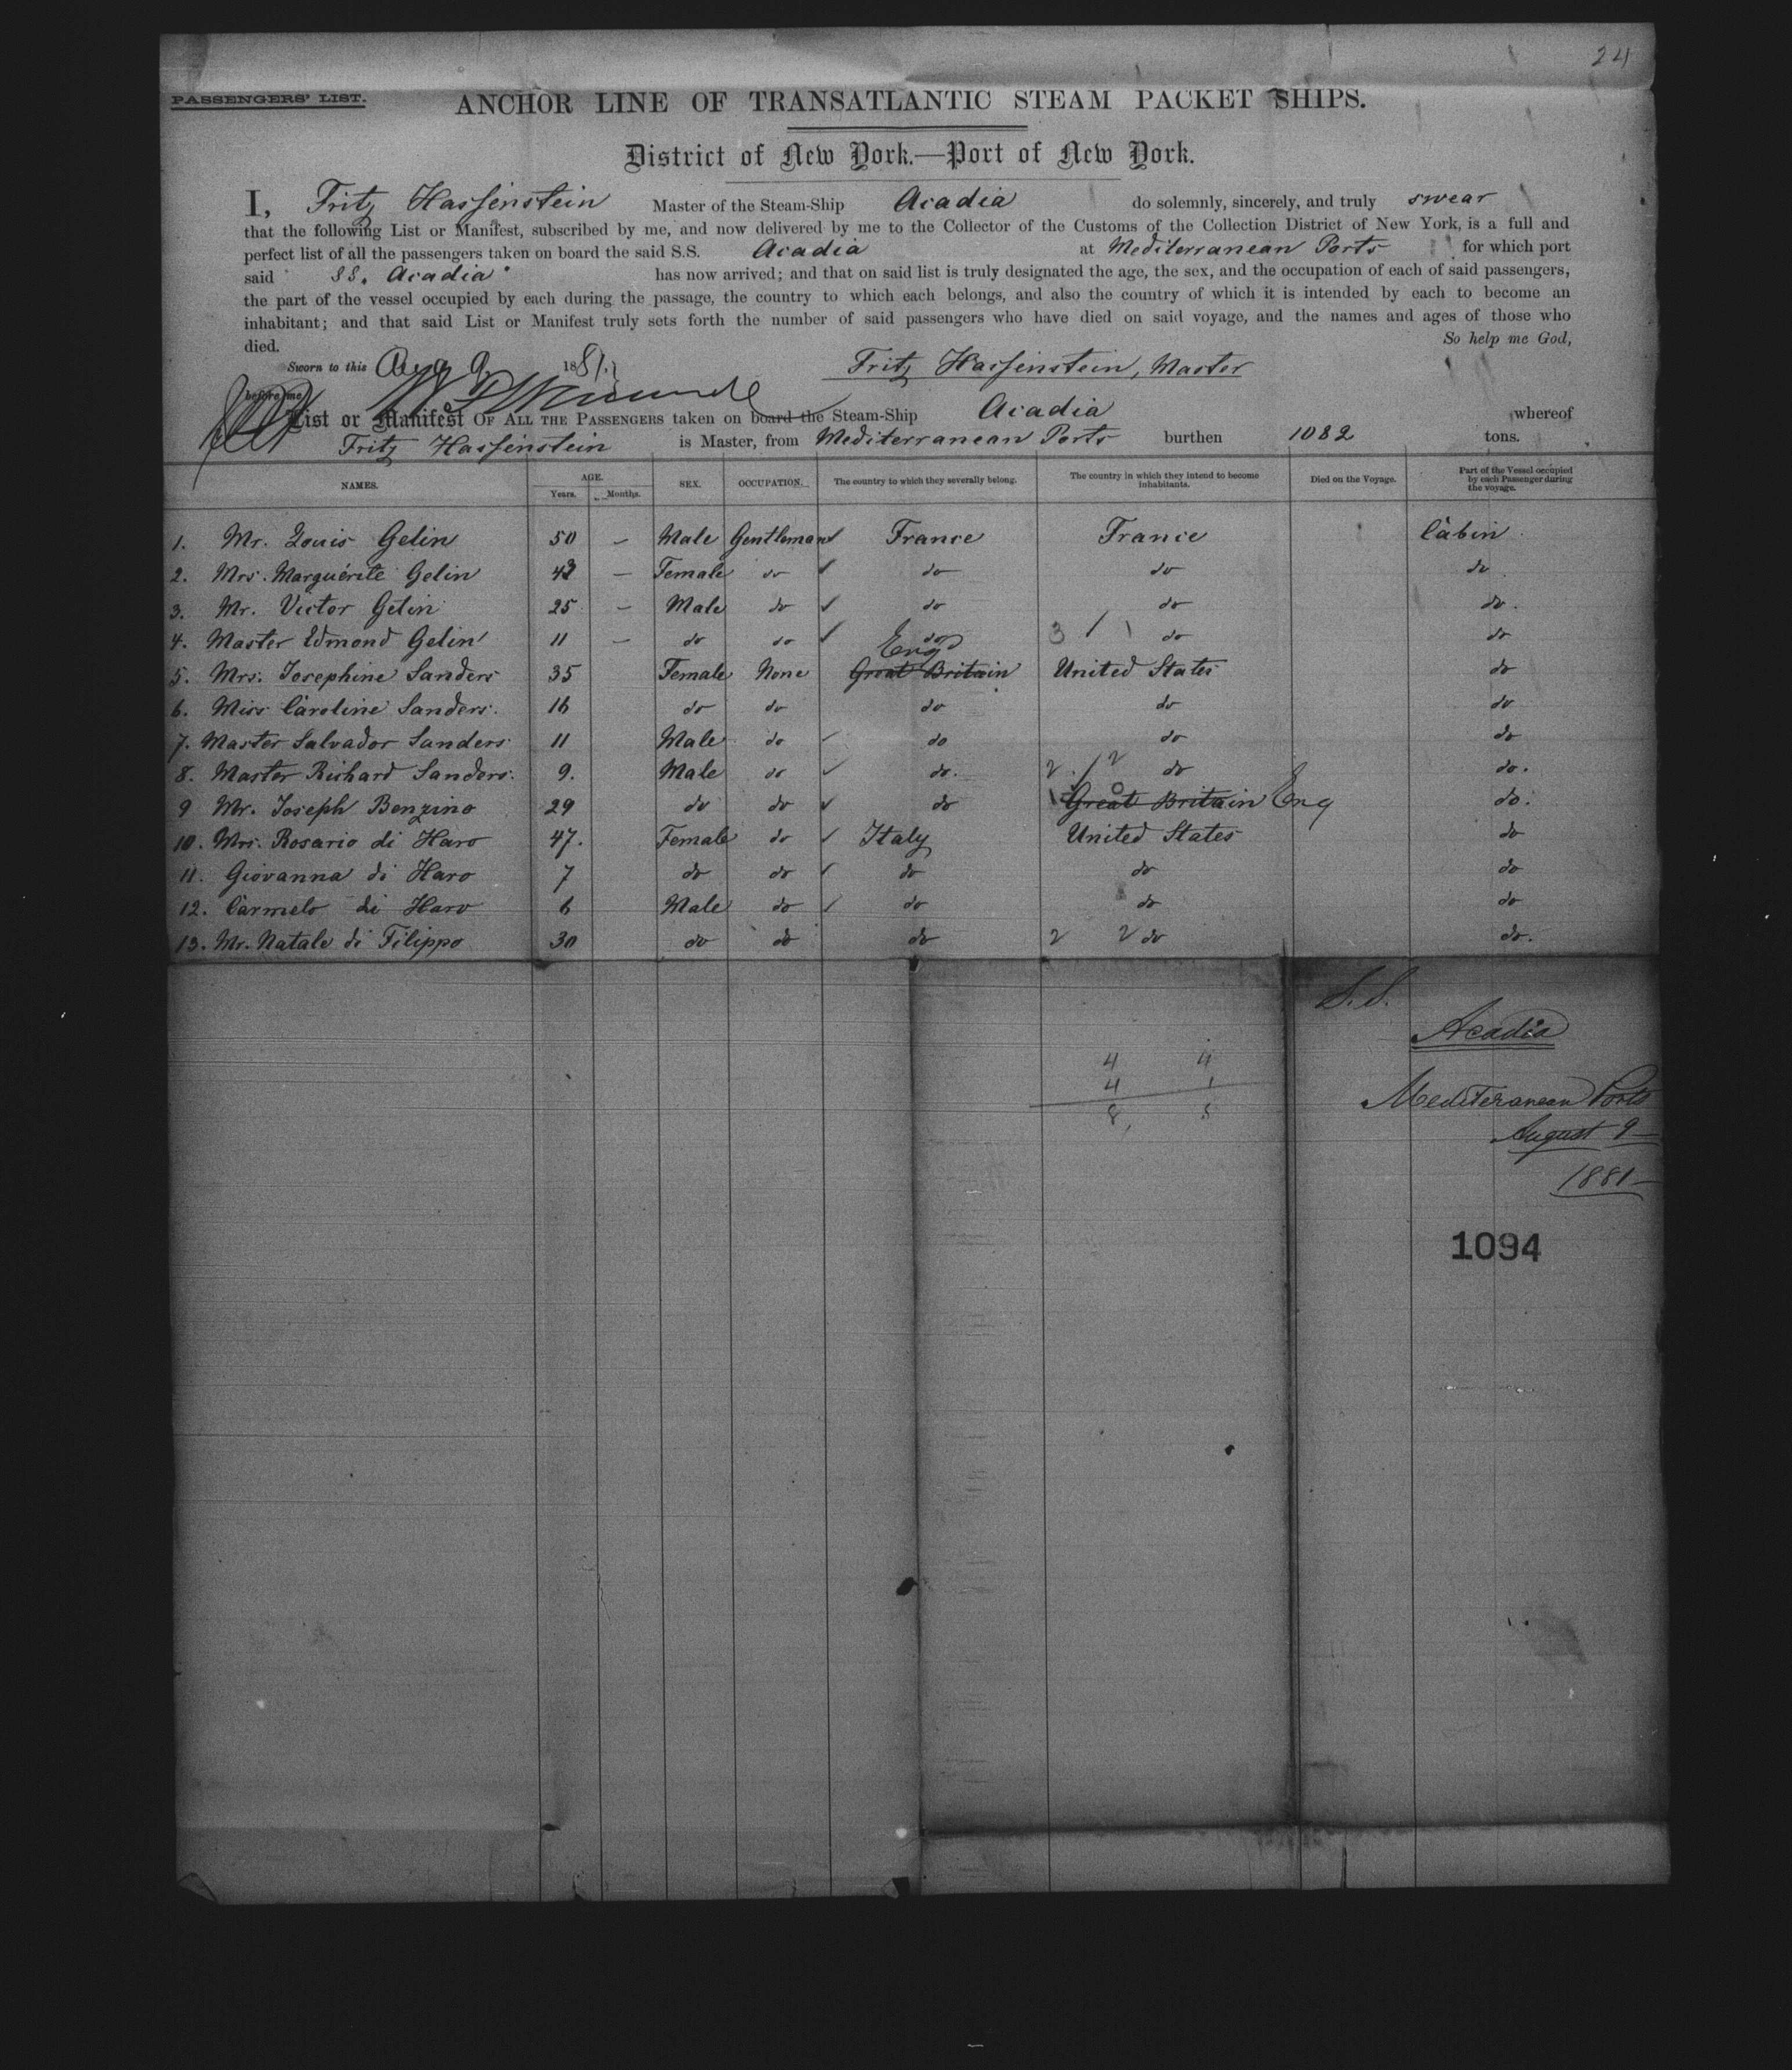 24
PASSENGERS' LIST.
ANCHOR LINE OF TRANSATLANTIC STEAM PACKET SHIPS.
District of New York.—Port of New York.
I, Fritz Hassenstein Master of the Steam-Ship Acadia do solemnly, sincerely, and truly swear
that the following List or Manifest, subscribed by me, and now delivered by me to the Collector of the Customs of the Collection District of New York, is a full and
perfect list of all the passengers taken on board the said S.S. Acadia at Mediterranean Ports for which port
said SS. Acadia has now arrived; and that on said list is truly designated the age, the sex, and the occupation of each of said passengers,
the part of the vessel occupied by each during the passage, the country to which each belongs, and also the country of which it is intended by each to become an
inhabitant; and that said List or Manifest truly sets forth the number of said passengers who have died on said voyage, and the names and ages of those who
died. So help me God,
Sworn to this Aug 9 1881
Fritz Hassenstein, Master
before me
List or Manifest OF ALL THE PASSENGERS taken on board the Steam-Ship Acadia whereof
Fritz Hassenstein is Master, from Mediterranean Ports burthen 1082 tons.
NAMES. AGE. Years. Months. SEX. OCCUPATION. The country to which they severally belong. The country in which they intend to become inhabitants. Died on the Voyage. Part of the Vessel occupied by each Passenger during the voyage.
1. Mr. Louis Gelin 50 – Male Gentleman France France Cabin
2. Mrs. Marguérite Gelin – Female do do do do
3. Mr. Victor Gelin 25 – Male do do do do.
4. Master Edmond Gelin 11 – do do do 3 / 1 do do
5. Mrs. Josephine Sanders 35 Female None Great Britain Eng United States do
6. Miss Caroline Sanders. 16 do do do do do
7. Master Salvador Sanders 11 Male do do do do
8. Master Richard Sanders. 9. Male do do. 2 / 2 do do.
9 Mr. Joseph Benzino 29 do do do Great Britain Eng do.
10. Mrs. Rosario di Haro 47. Female do Italy United States do
11. Giovanna di Haro 7 do do do do do
12. Carmelo di Haro 6 Male do do do do
13. Mr. Natale di Filippo 30 do do do 2 2 do do.
S.S.
Acadia
Mediteranean Ports
August 9
1881
4 4
4 1
8 5
1094